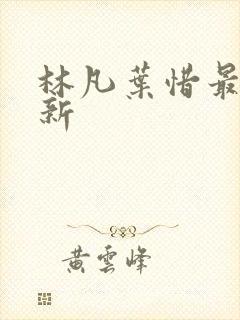 林凡葉惜最
新
黄雲峰